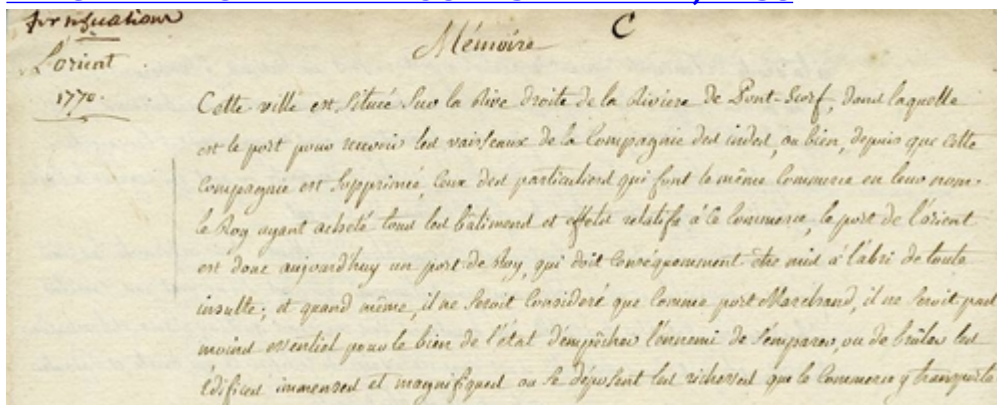 fortifications
L'orient
1770.
Mémoire
C
Cette ville est Située Sur la Rive droite de la Riviere de Pont-Scorf, dans laquelle
est le port pour recevoir les vaisseaux de la Compagnie des indes, ou bien, depuis que Cette
Compagnie est Supprimée, Ceux des particuliers qui font le même Commerce en leur nom.
le Roy ayant acheté tous les bâtiments et effets relatifs à Ce Commerce, le port de l'orient
est donc aujourd'huy un port de Roy, qui doit Conséquemment être mis à l'abri de toute
insulte; et quand même, il ne Seroit Consideré que Comme port Marchand, il ne Seroit pas
moins essentiel pour le bien de l'état d'empêcher l'ennemi de S'emparer, ou de brûler les
Édifices immenses et magnifiques ou Se déposent les richesses que le Commerce y transporte